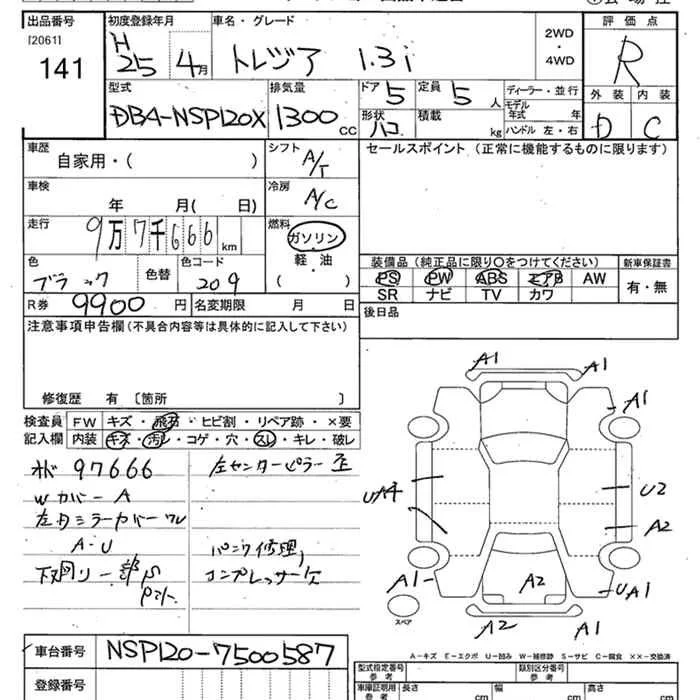 出品番号 初度登録年月 車名・グレード 2WD ・ 4WD 評価点
[2061]
141 H25 4月 トレジア 1.3i R
型式 排気量 ドア 5 定員 5人 ディーラー・並行 外装 内装
DBA-NSP120X 1300cc 形状 ハコ 積載 kg モデル年式 年 D C
ハンドル 左・右
車歴 シフト セールスポイント(正常に機能するものに限ります)
自家用・( ) A/T
車検 冷房
年 月( 日) A/C
走行 燃料
9万7千666km ガソリン
軽・油
( )
色 色替 色コード 装備品(純正品に限り○をつけてください) 新車保証書
ブラック 209 PS PW ABS エアB AW 有・無
SR ナビ TV カワ
R券 9900円 名変期限 月 日 後日品
注意事項申告欄(不具合内容等は具体的に記入して下さい)
修復歴 有 〔箇所 〕
検査員 FW キズ・飛石・ヒビ割・リペア跡・×要
記入欄 内装 キズ・汚レ・コゲ・穴・スレ・キレ・破レ
97666 左センターピラー歪
Wカバー A
左右ミラーカバー ワレ
A-U パニク修理,
下廻り一部S コンプレッサー欠
A1 A1
A1
U2
A2
A1 A2 UA1
スペア
A2 A1
A-キズ E-エクボ U-凹み W-補修跡 S-サビ C-腐食 ××-交換済
車台番号 NSP120-7500587 型式指定番号 参考 類別区分番号 参考
登録番号 車庫証明用 参考 長さ cm 幅 cm 高さ cm